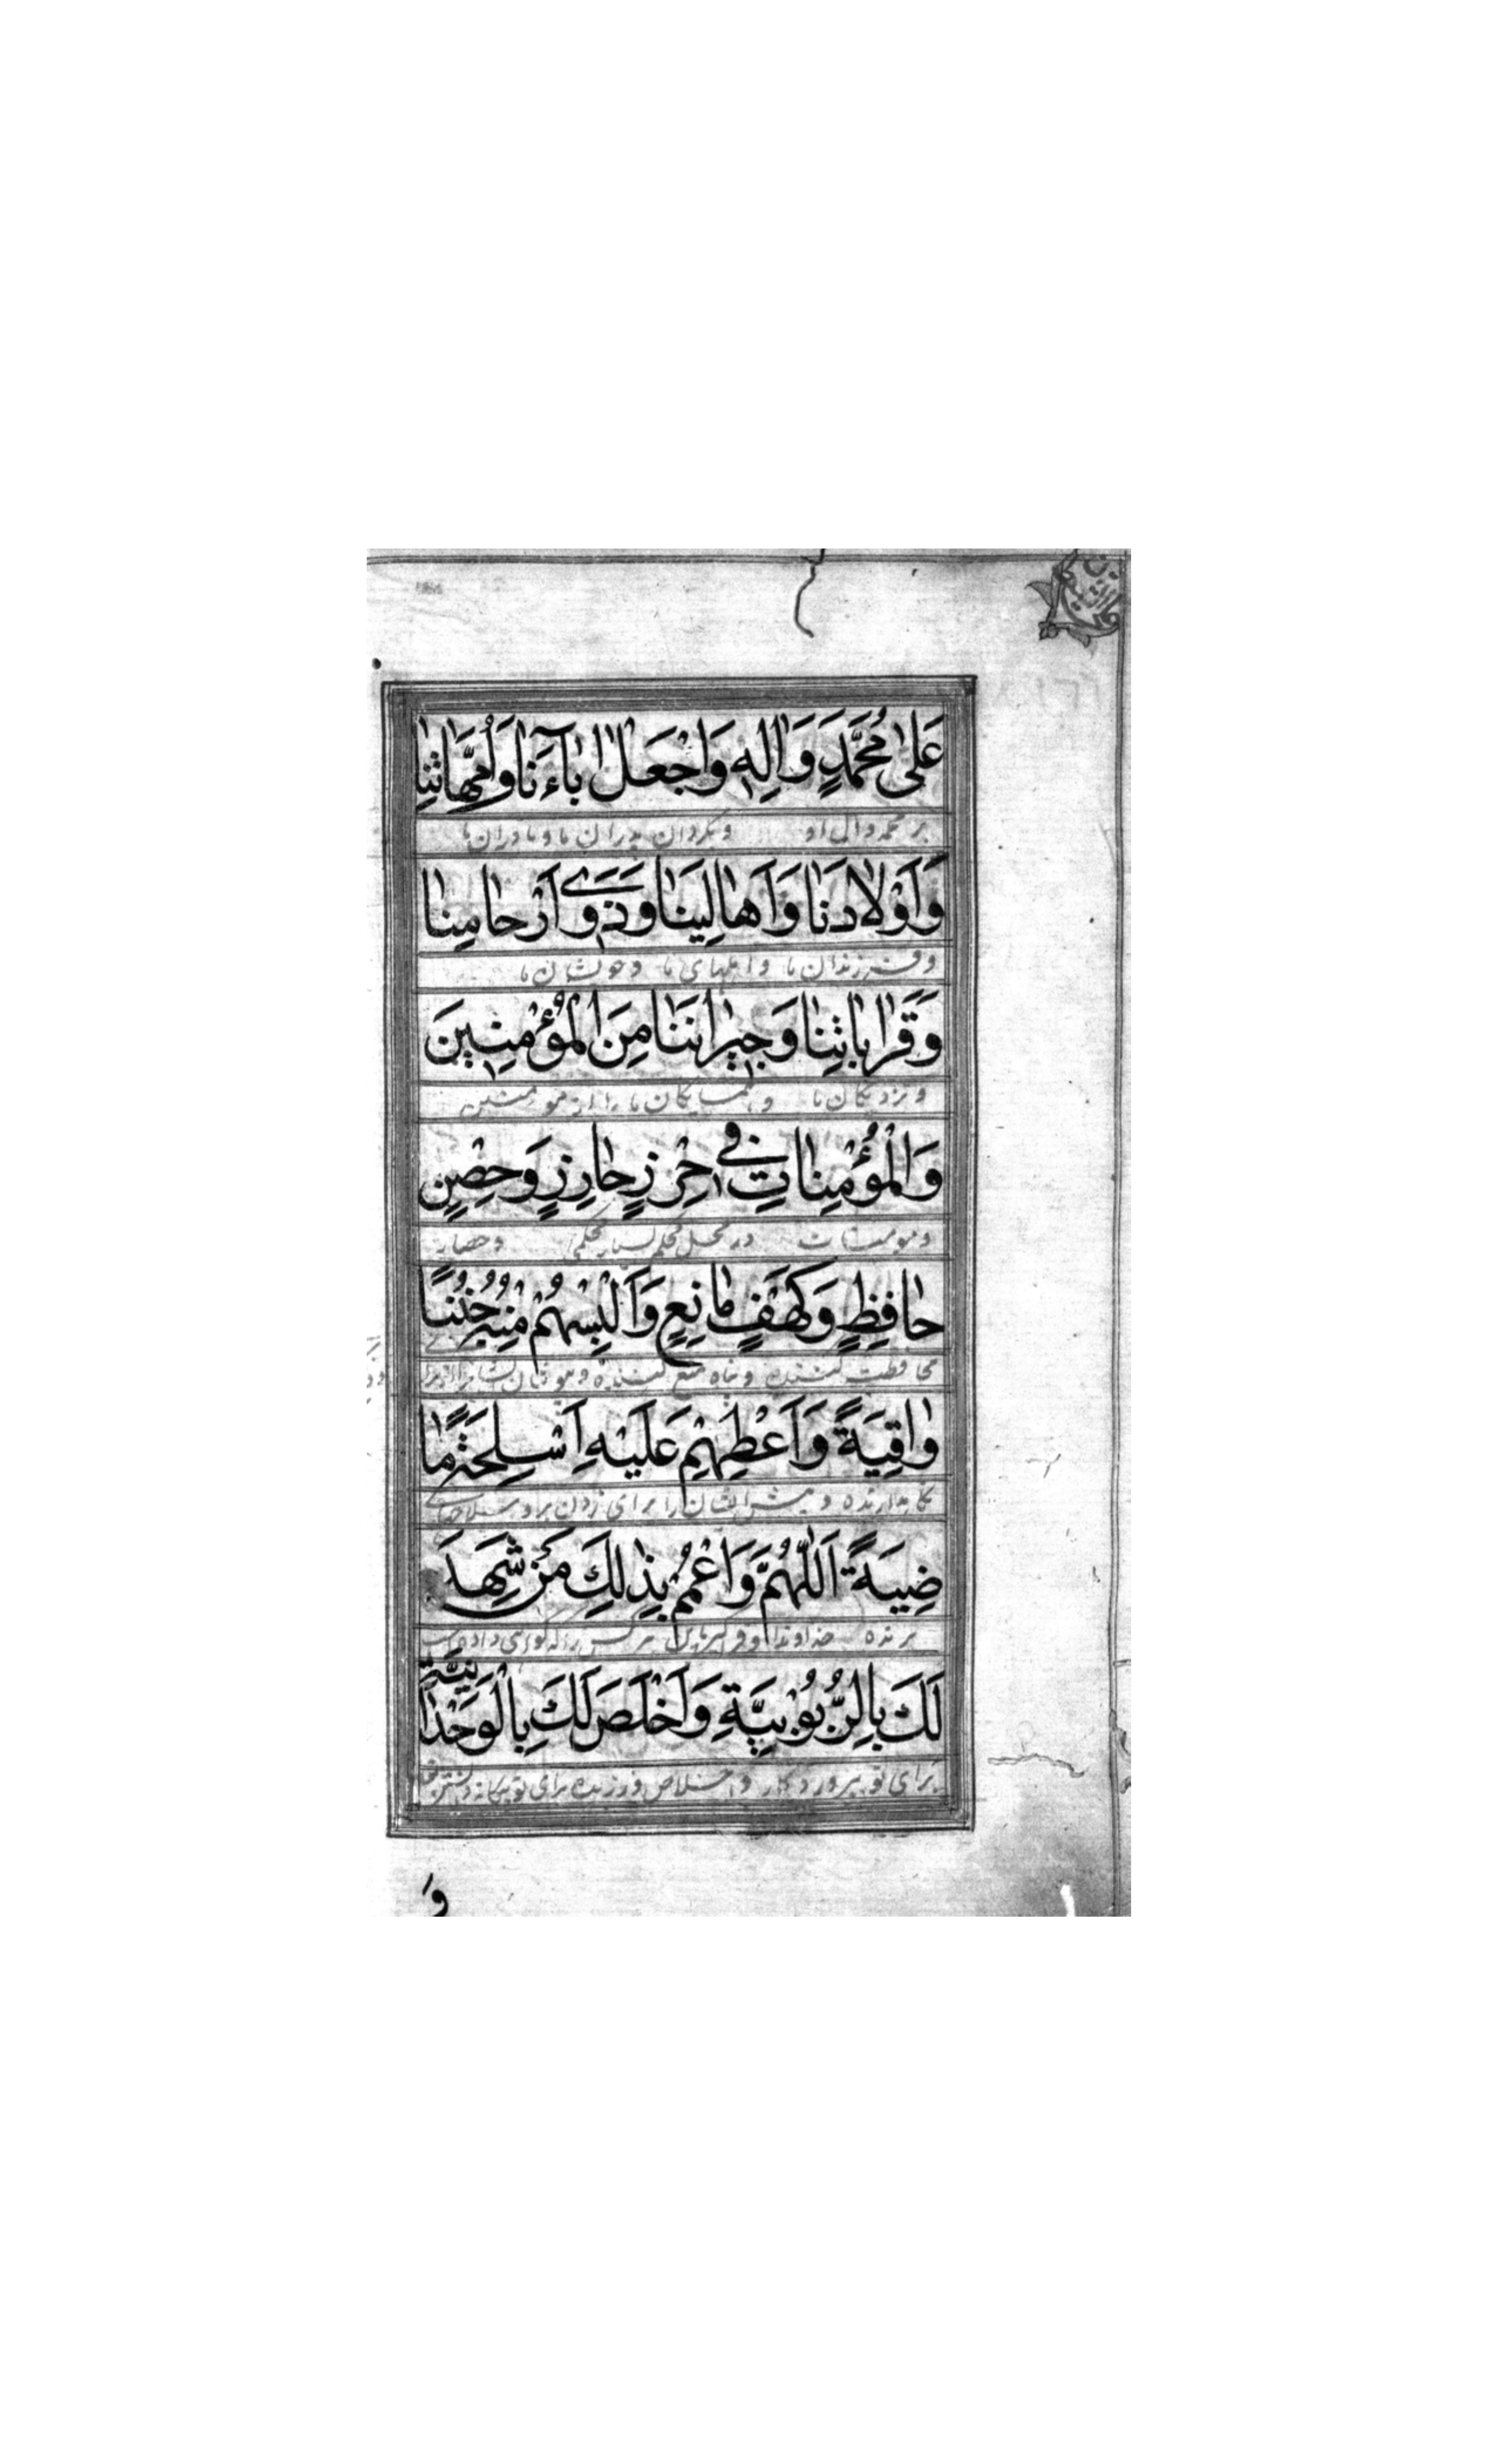 عَلىٰ مُحَمَّدٍ وَاٰلِهِ وَاجْعَلْ اٰبآءَنا وَاُمَّهاتِنا
بر محمد وال او وبگردان پدران ما و مادران ما
وَاَوْلادَنا وَاَهالِيَنا وَذَوى اَرْحامِنا
وفرزندان ما واهلهای ما وخویشان ما
وَقَراباتِنا وَجيرانَنا مِنَ الْمُؤْمِنينَ
ونزدیکان ما وهمسایکان ما را از مومنین
وَالْمُؤْمِناتِ فى حِرْزٍ حارِزٍ وَحِصْنٍ
ومومنات در محل محکم بسیار محکمی وحصار
حافِظٍ وَكَهْفٍ مانِعٍ وَاَلْبِسْهُمْ مِنْهُ جُنَنًا
محافظت کننده وپناه منع کننده وبپوشان ایشانرا از
واقِيَةً وَاَعْطِهِمْ عَلَيْهِ اَسْلِحَةً ما
نگاهدارنده وببخش ایشان را برای زدن براو سلاحهای
ضِيَةً اَللّٰهُمَّ وَاعْمُمْ بِذٰلِكَ مَنْ شَهِدَ
برنده خداوندا وفراگیر باین هر کس را که گواهی داده
لَكَ بِالرُّبُوْبِيَّةِ وَاَخْلَصَ لَكَ بِالْوَحْدانِيَّةِ
برای تو بپروردگار واخلاص ورزیده برای تو بیگانه دانستن
وَ